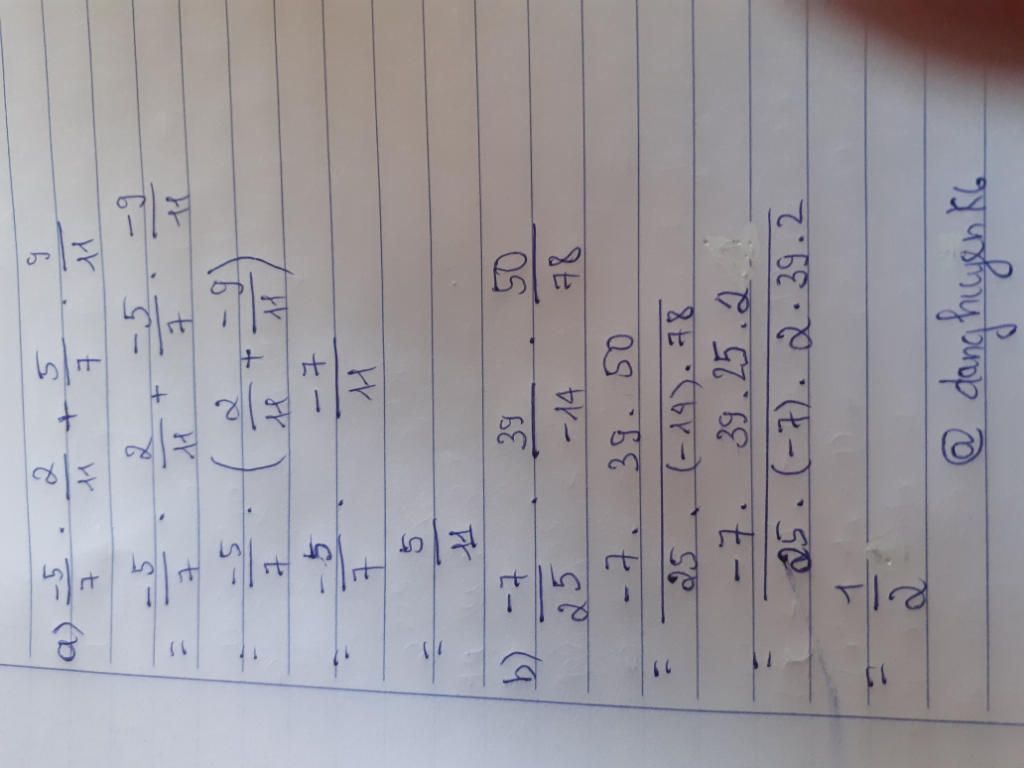 a) -5/7 . 2/11 + 5/7 . 9/11
= -5/7 . 2/11 + -5/7 . -9/11
= -5/7 . (2/11 + -9/11)
= -5/7 . -7/11
= 5/11
b) -7/25 . 39/-14 . 50/78
= -7 . 39 . 50 / 25 . (-14) . 78
= -7 . 39 . 25 . 2 / 25 . (-7) . 2 . 39 . 2
= 1/2
@ danghuyenK6